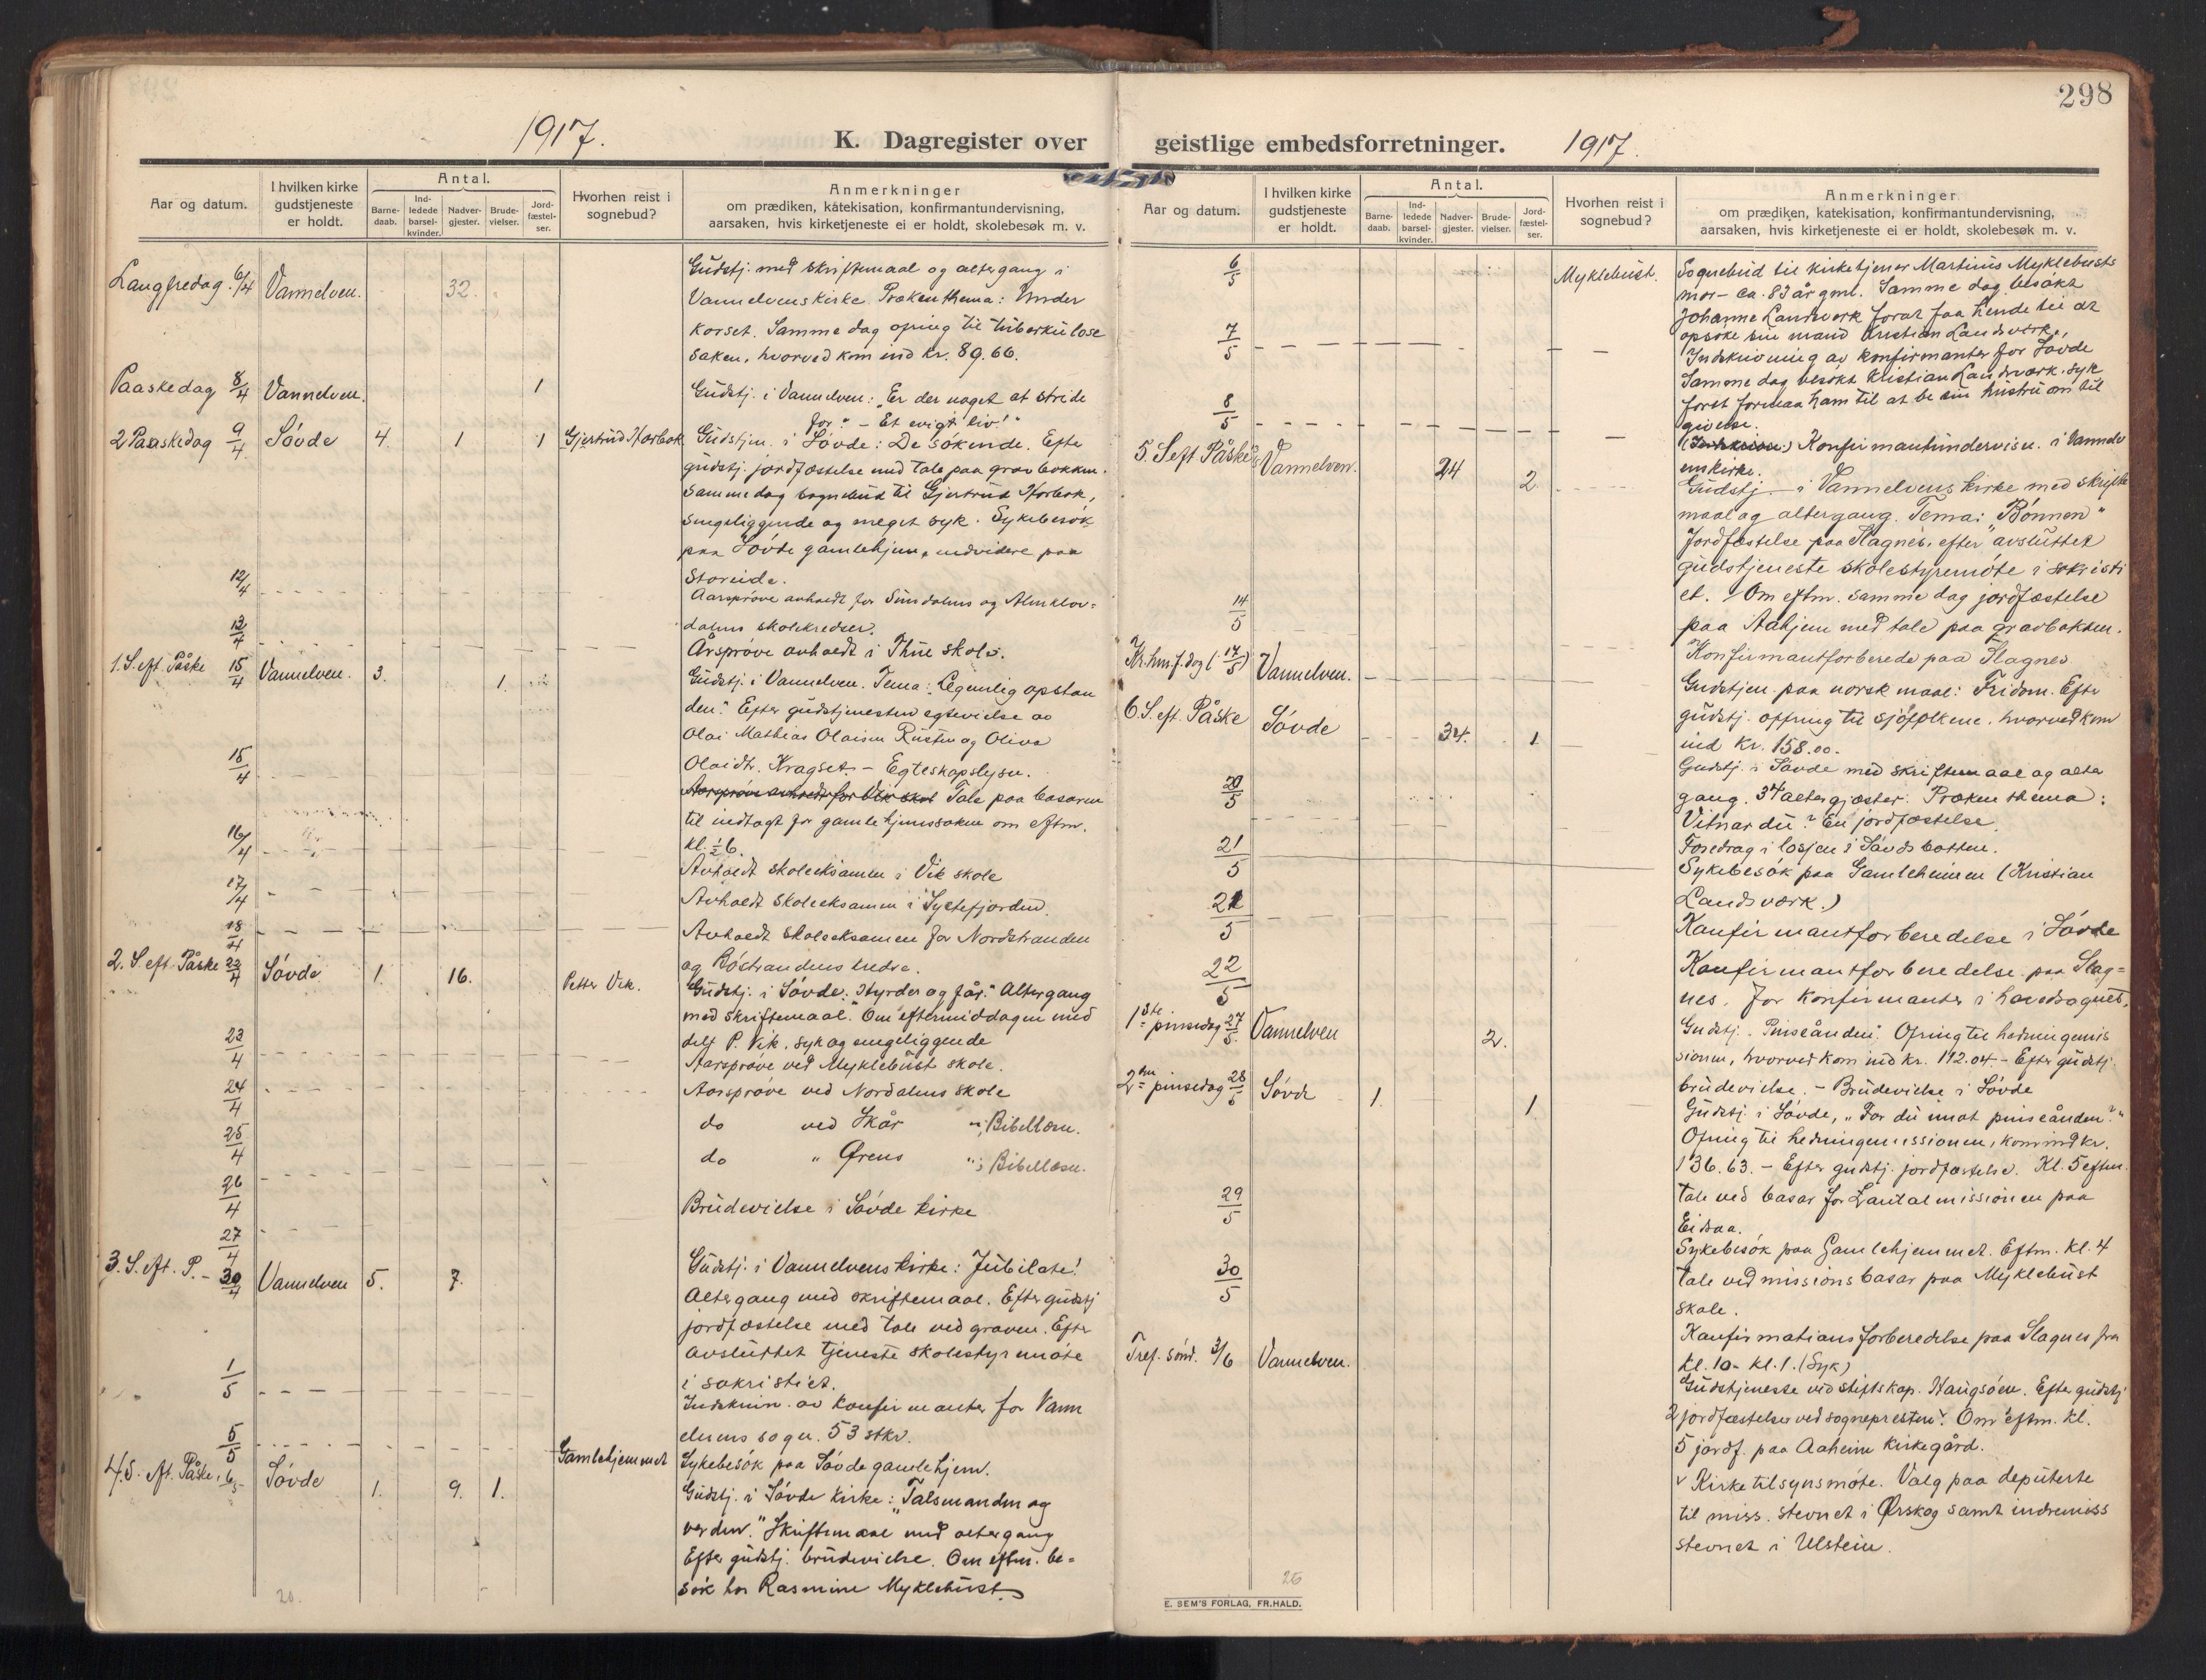 298
1917.
K. Dagregister over
Aar og datum.
I hvilken kirke
gudstjeneste
er holdt.
Antal.
Barne-
daab.
Ind-
ledede
barsel-
kvinder.
Nadver-
gjester.
Brude-
vielser.
Jord-
fæstel-
ser.
Hvorhen reist i
sognebud?
Anmerkninger
om prædiken, katekisation, konfirmantundervisning,
aarsaken, hvis kirketjeneste ei er holdt, skolebesøk m. v.
Langfredag 6/4 Vannelven. 32. Gudstj. med skriftemaal og altergang i
Vannelvens kirke. Prækenthema: Under
korset. Samme dag ofring til tuberkulose
saken, hvorved kom ind kr. 89.66.
Paaskedag 8/4 Vannelven. 1 Gudstj. i Vannelven: "Er der noget at stride
for." - Et evigt liv!"
2 Paaskedag 9/4 Søvde 4. 1 1 Gjertrud Horbak Gudstjen. i Søvde: De søkende. Efte
gudstj. jordfæstelse med tale paa gravbakken.
Samme dag sognebud til Gjertrud Horbak,
sengeliggende og meget syk. Sykebesøk
paa Søvde gamlehjem, endvidere paa
Storeide.
12/4 Aarsprøve avholdt for Sundalens og Almklov=
dalens skolekredser.
13/4 Årsprøve avholdt i Thue skole.
1. S. eft. Påske 15/4 Vannelven. 3. 1. Gudstj. i Vannelven. Tema: Legemlig opstan
den." Efter gudstjenesten egtevielse av
Olai Mathias Olaisen Rusten og Oliva
Olaidtr. Kragset. - Egteskapslysn.
15/4 Aarsprøve avholdt for Vik skol Tale paa basaren
til indtægt for gamlehjemssaken om eftm.
kl. ½6.
16/4 Avholdt skoleeksamen i Vik skole
17/4 Avholdt skoleeksamen i Syltefjorden.
18/4 Avholdt skoleeksamen for Nordstranden
og Røstrandens kreds.
2. S. eft. Påske 22/4 Søvde 1. 16. Petter Vik. Gudstj. i Søvde: "Hyrder og får." Altergang
med skriftemaal. Om eftermiddagen med
delt P. Vik, syk og sengeliggende
23/4 Aarsprøve ved Myklebust skole.
24/4 Aarsprøve ved Nordalens skole
25/4 do ved Skår "; Bibellæsn.
26/4 do " Ørens "; Bibellæsn.
27/4 Brudevielse i Søvde kirke
3. S. eft. P. - 30/4 Vannelven 5. 7. Gudstj. i Vannelvens kirke: Jubilate!
Altergang med skriftemaal. Efter gudstj
jordfæstelse med tale ved graven. Efter
avsluttet tjeneste skolestyrmøte
i sakristiet.
1/5 Indskriv. av konfirmanter for Vann
elvens sogn. 53 stkr.
5/5 Gamlehjemmet Sykebesøk paa Søvde gamlehjem.
4. S. eft. Påske, 6/5 Søvde 1. 9. 1. Gudstj. i Søvde kirke: "Talsmanden og
verden." Skriftemaal med altergang
Efter gudstj. brudevielse. Om eftm. be=
søk hos Rasmine Myklebust.
20.
geistlige embedsforretninger.
1917.
Aar og datum.
I hvilken kirke
gudstjeneste
er holdt.
Antal.
Barne-
daab.
Ind-
ledede
barsel-
kvinder.
Nadver-
gjester.
Brude-
vielser.
Jord-
fæstel-
ser.
Hvorhen reist i
sognebud?
Anmerkninger
om prædiken, katekisation, konfirmantundervisning,
aarsaken, hvis kirketjeneste ei er holdt, skolebesøk m. v.
6/5 Myklebust. Sognebud til kirketjener Martinus Myklebusts
mor - ca. 83 år gml. Samme dag besøkt
Johanne Landsverk forat faa hende til at
opsøke sin mand Kristian Landsverk,
7/5 Indskrivning av konfirmanter for Søvde
Samme dag besøkt Kristian Landsværk, syk
forat formaa ham til at be sin hustru om til
givelse.
8/5 Konfirmantundervisn. i Vannelv
enskirke.
5. S. eft. Påske Vannelven. 24 2. Gudstj. i Vannelvens kirke med skrifte
maal og altergang. Tema: "Bønnen"
Jordfæstelse paa Slagnes, efter avsluttet
gudstjeneste skolestyremøte i sakristi
et. Om eftm. samme dag jordfæstelse
paa Aahjem med tale paa gravbakken.
14/5 Konfirmantforberede paa Slagnes
Kr. hmf. dag (17/5) Vannelven. Gudstjen. paa norsk maal: Fridom. Efte
gudstj. offring til sjøfolkene, hvorved kom
ind kr. 158.00.
6. S. eft. Påske Søvde 34. 1 Gudstj. i Søvde med skriftemaal og alter
gang. 34 altergjæster. Prækenthema:
Vitnar du? En jordfæstelse.
20/5 Foredrag i losjen i Søvdsbotten.
21/5 Sykebesøk paa Gamleheimen (Kristian
Landsværk.)
21/5 Konfirmantforberedelse i Søvde
22/5 Konfirmantforberedelse paa Slag=
nes, for konfirmanter i hovedsognet.
1ste pinsedag 27/5. Vannelven 2. Gudstj. "Pinseånden". Ofring til hedningemis
sionen, hvorved kom ind kr. 112.04. - Efter gudstj.
brudevielse. - Brudevielse i Søvde
2den pinsedag 28/5 Søvde 1. 1. Gudstj. i Søvde, "Tar du imot pinseånden?"
Ofring til hedningemissionen, kom ind kr.
136.63. - Efter gudstj. jordfæstelse. Kl. 5 eftm.
tale ved basar for Santalmissionen paa
Eidsaa.
29/5 Sykebesøk paa Gamlehjemmet. Eftm. kl. 4
tale ved missionsbasar paa Myklebust
skole.
30/5 Konfirmationsforberedelse paa Slagnes fra
kl. 10 - kl. 1. (Syk)
Tref. sønd. 3/6 Vannelven. Gudstjeneste ved stiftskap. Haugsøen. Efter gudstj
2 jordfæstelser ved sognepresten. Om eftm. kl.
5 jordf. paa Aaheim kirkegård.
v Kirketilsynsmøte. Valg paa deputerte
til miss. stevnet i Ørskog samt indremiss
stevnet i Ulstein.
26
E. SEM'S FORLAG, FR.HALD.